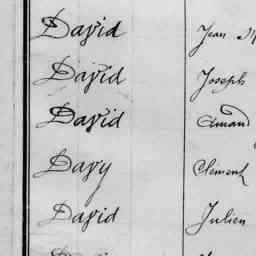 David Jean
David Joseph
David Amand
Davy Clement
David Julien